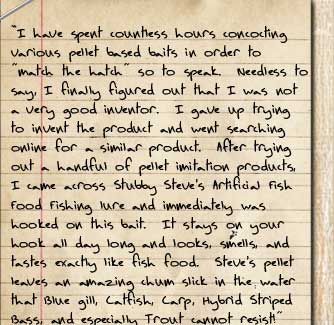 "I have spent countless hours concocting
various pellet based baits in order to
"match the hatch" so to speak. Needless to
say, I finally figured out that I was not
a very good inventor. I gave up trying
to invent the product and went searching
online for a similar product. After trying
out a handful of pellet imitation products,
I came across Stubby Steve's Artificial Fish
Food Fishing lure and immediately was
hooked on this bait. It stays on your
hook all day long and looks, smells, and
tastes exactly like fish food. Steve's pellet
leaves an amazing chum slick in the water
that Blue gill, Catfish, Carp, Hybrid Striped
Bass, and especially Trout cannot resist!"